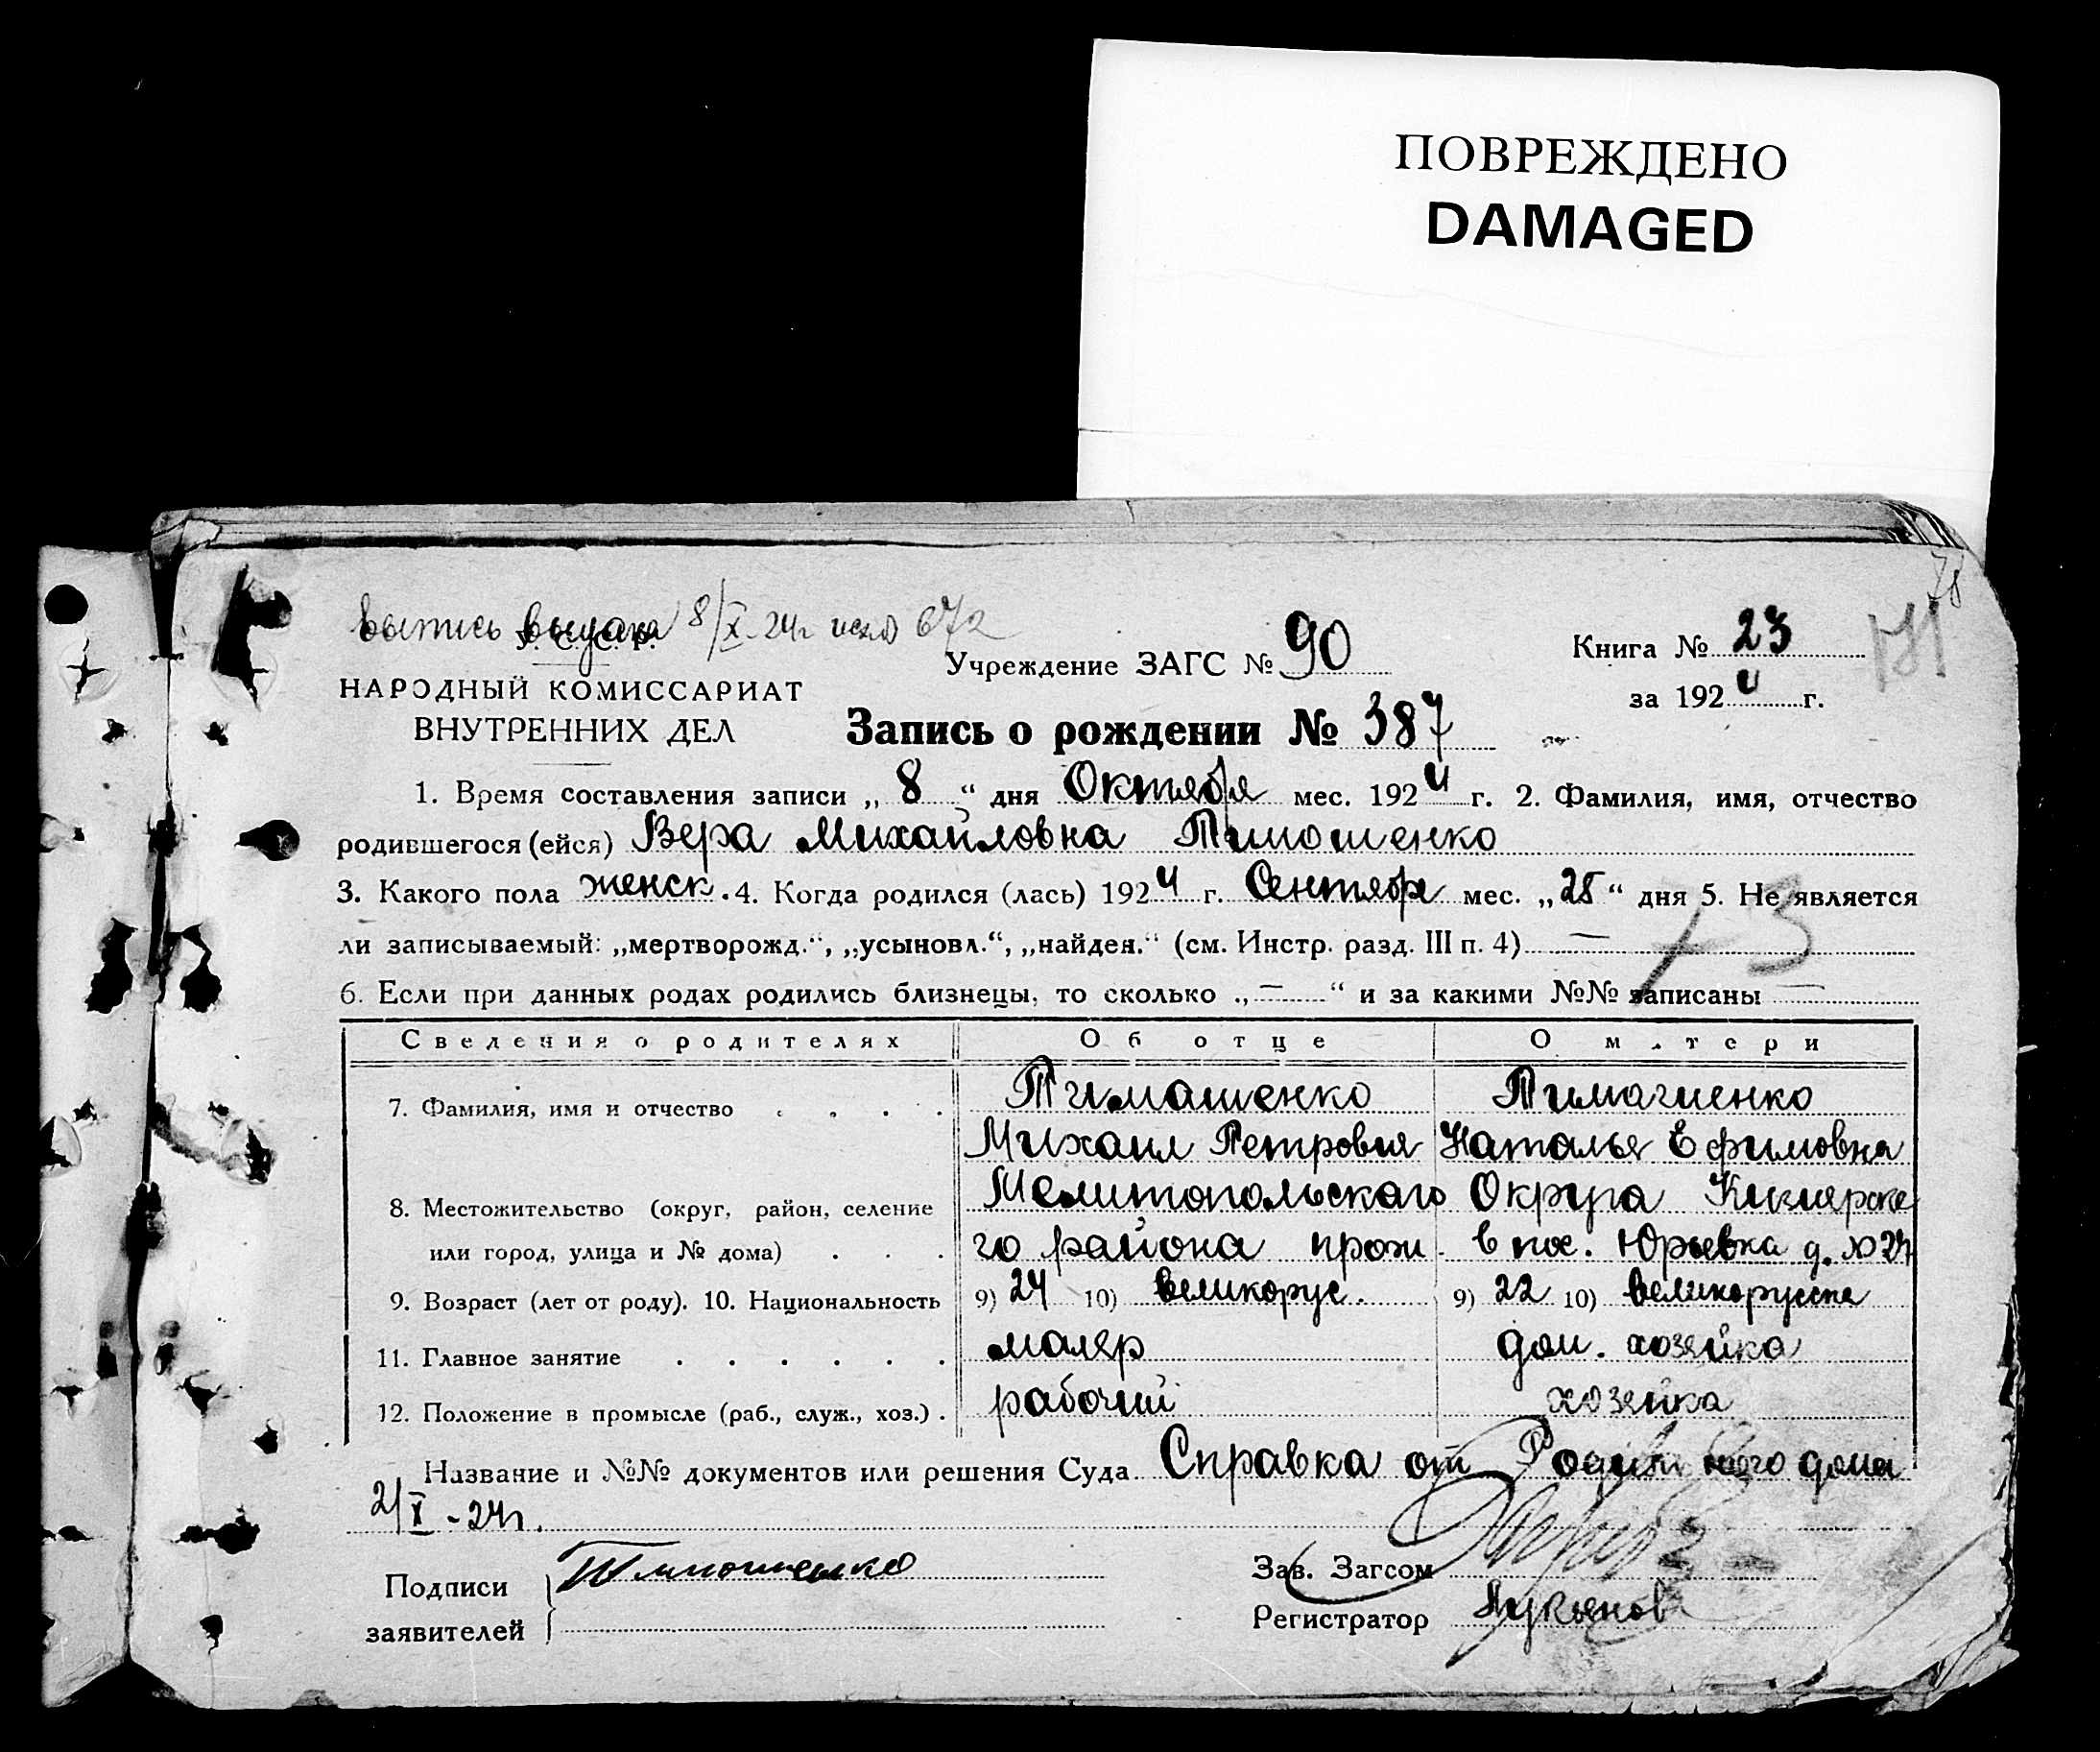 ПОВРЕЖДЕНО
DAMAGED
78
выпись выдана 8/X-24г 672
У. С. С. Р.
НАРОДНЫЙ КОМИССАРИАТ
ВНУТРЕННИХ ДЕЛ
Учреждение ЗАГС № 90
Книга № 23
за 1924 г.
Запись о рождении № 387
1. Время составления записи „ 8 “ дня Октября мес. 1924 г. 2. Фамилия, имя, отчество
родившегося (ейся) Вера Михайловна Тимошенко
3. Какого пола женск. 4. Когда родился (лась) 1924 г. Сентября мес. „25“ дня 5. Не является
ли записываемый: „мертворожд.“, „усыновл.“, „найден.“ (см. Инстр. разд. III п. 4) —
6. Если при данных родах родились близнецы, то сколько „—“ и за какими №№ записаны —
Сведения о родителях Об отце О матери
7. Фамилия, имя и отчество Тимашенко Тимашенко
Михаил Петровия Наталья Ефимовна
8. Местожительство (округ, район, селение Мелитопольскаго Округа Кизиярска
или город, улица и № дома) го района прож. в пос. Юрьевка д. №27
9. Возраст (лет от роду). 10. Национальность 9) 24 10) великорус. 9) 22 10) великорусска
11. Главное занятие маляр дом. хозяйка
12. Положение в промысле (раб., служ., хоз.) рабочий хозяйка
Название и №№ документов или решения Суда Справка от Родильного дома
2/X-24г.
Подписи заявителей Тимошенко
Зав. Загсом
Регистратор Лукьянов